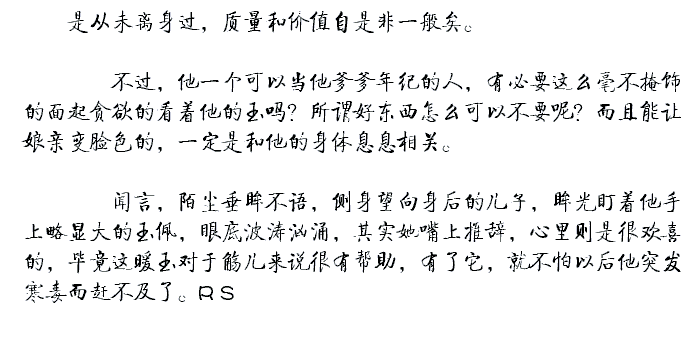 是从未离身过，质量和价值自是非一般矣。
不过，他一个可以当他爹爹年纪的人，有必要这么毫不掩饰
的面起贪欲的看着他的玉吗？所谓好东西怎么可以不要呢？而且能让
娘亲变脸色的，一定是和他的身体息息相关。
闻言，陌尘垂眸不语，侧身望向身后的儿子，眸光盯着他手
上略显大的玉佩，眼底波涛汹涌，其实她嘴上推辞，心里则是很欢喜
的，毕竟这暖玉对于觞儿来说很有帮助，有了它，就不怕以后他突发
寒毒而赶不及了。RS